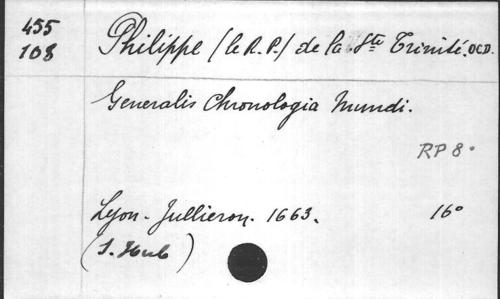 455
108
Philippe (le R.P.) de la Ste Trinité. OCD.
Generalis Chronologia Mundi.
RP 8°
Lyon - Jullieron. 1663. 16°
(S. Hub)